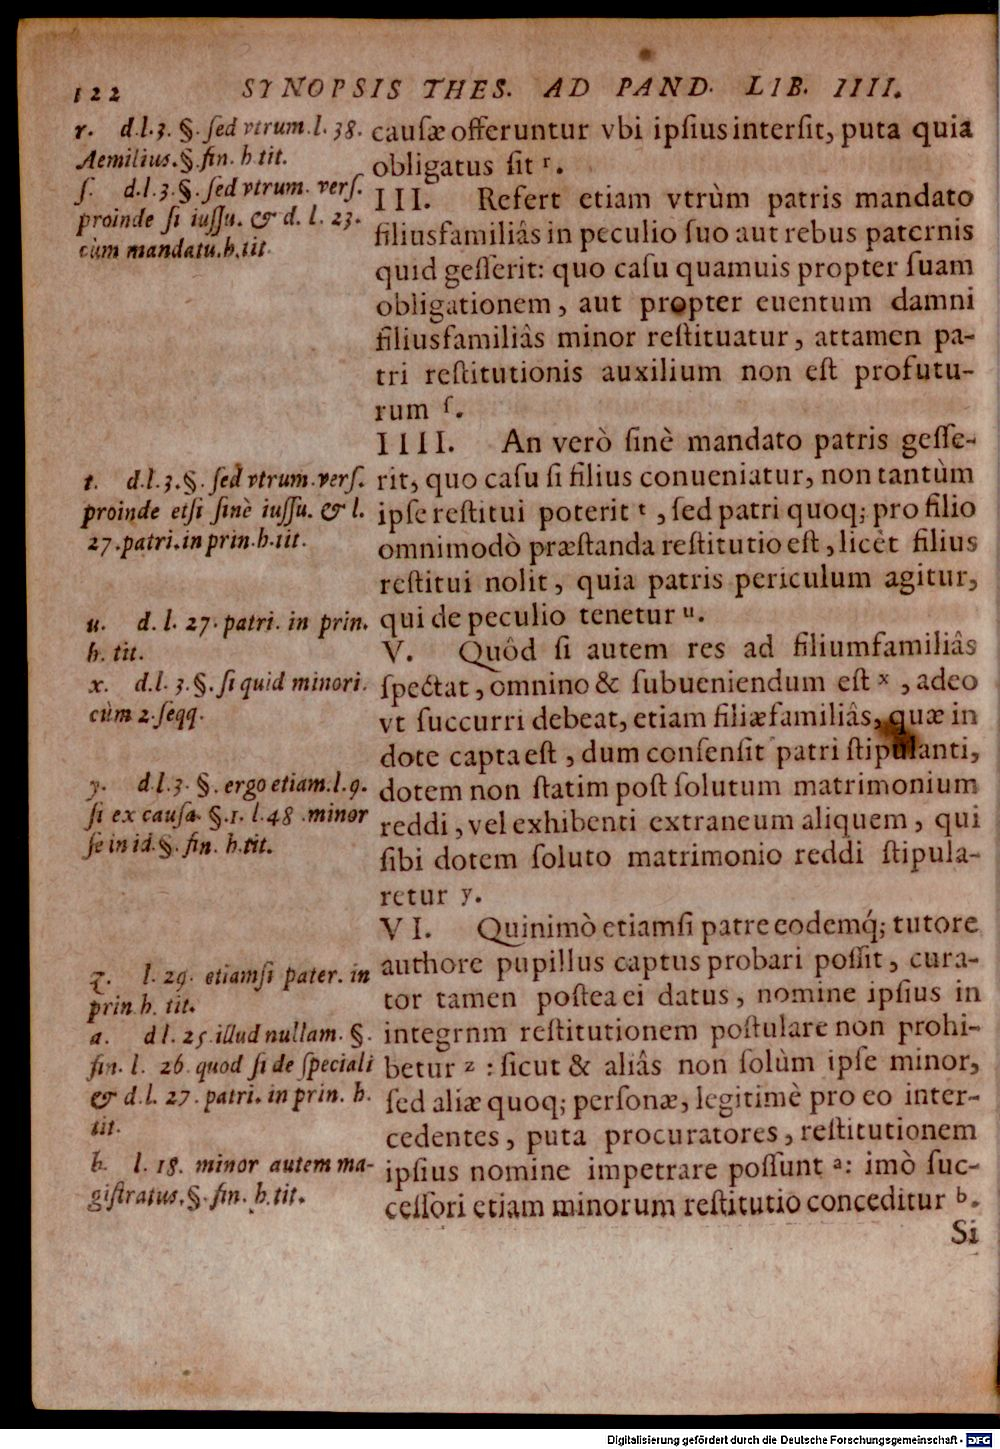 122 SYNOPSIS THES. AD PAND. LIB. IIII.
r. d.l.3. §. ſed vtrum.l. 38.
Aemilius.§.fin. h.tit.
ſ. d.l.3.§.ſed vtrum. verſ.
proinde ſi iuſſu. & d. l. 23.
cùm mandatu.h.tit.
t. d.l.3.§. ſed vtrum.verſ.
proinde etſi ſinè iuſſu. & l.
27.patri.in prin.h.tit.
u. d. l. 27. patri. in prin.
h. tit.
x. d.l. 3.§. ſi quid minori.
cùm 2.ſeqq.
y. d.l.3. §. ergo etiam.l.9.
ſi ex cauſa. §.1. l.48 .minor
ſe in id.§. fin. h.tit.
z. l. 29. etiamſi pater. in
prin.h. tit.
a. d l. 25.illud nullam. §.
fin. l. 26. quod ſi de ſpeciali
& d.l. 27. patri. in prin. h.
tit.
b. l. 18. minor autem ma-
giſtratus.§. fin. h.tit.
cauſæ offeruntur vbi ipſius interſit, puta quia
obligatus ſit r.
III. Refert etiam vtrùm patris mandato
filiusfamiliâs in peculio ſuo aut rebus paternis
quid geſſerit: quo caſu quamuis propter ſuam
obligationem, aut propter euentum damni
filiusfamiliâs minor reſtituatur, attamen pa-
tri reſtitutionis auxilium non eſt profutu-
rum ſ.
IIII. An verò ſinè mandato patris geſſe-
rit, quo caſu ſi filius conueniatur, non tantùm
ipſe reſtitui poterit t, ſed patri quoq; pro filio
omnimodò præſtanda reſtitutio eſt, licèt filius
reſtitui nolit, quia patris periculum agitur,
qui de peculio tenetur u.
V. Quôd ſi autem res ad filiumfamiliâs
ſpectat, omnino & ſubueniendum eſt x, adeo
vt ſuccurri debeat, etiam filiæfamiliâs, quæ in
dote capta eſt, dum conſenſit patri ſtipulanti,
dotem non ſtatim poſt ſolutum matrimonium
reddi, vel exhibenti extraneum aliquem, qui
ſibi dotem ſoluto matrimonio reddi ſtipula-
retur y.
VI. Quinimò etiamſi patre eodemq́; tutore
authore pupillus captus probari poſſit, cura-
tor tamen poſtea ei datus, nomine ipſius in
integrnm reſtitutionem poſtulare non prohi-
betur z : ſicut & aliâs non ſolùm ipſe minor,
ſed aliæ quoq; perſonæ, legitimè pro eo inter-
cedentes, puta procuratores, reſtitutionem
ipſius nomine impetrare poſſunt a: imò ſuc-
ceſſori etiam minorum reſtitutio conceditur b.
Si
Digitalisierung gefördert durch die Deutsche Forschungsgemeinschaft - DFG